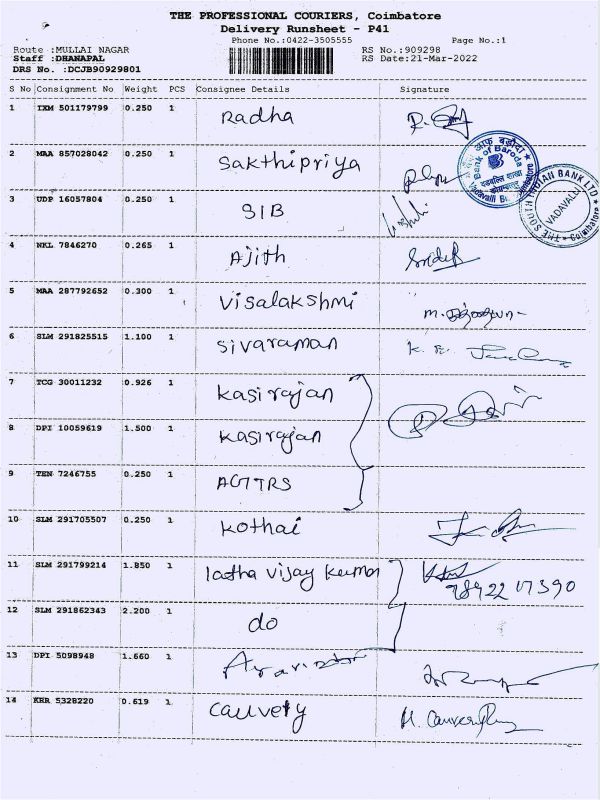 THE PROFESSIONAL COURIERS, Coimbatore
Delivery Runsheet - P41
Phone No.:0422-3505555 Page No.:1
Route :MULLAI NAGAR RS No.:909298
Staff :DHANAPAL RS Date:21-Mar-2022
DRS No. :DCJB90929801
S No Consignment No Weight PCS Consignee Details Signature
1 IXM 501179799 0.250 1 Radha
2 MAA 857028042 0.250 1 Sakthipriya
Bank of Baroda
3 UDP 16057804 0.250 1 SIB
THE SOUTH INDIAN BANK LTD
VADAVALLI
Coimbatore
4 NKL 7846270 0.265 1 Ajith Sridef
5 MAA 287792652 0.300 1 Visalakshmi
6 SLM 291825515 1.100 1 Sivaraman
7 TCG 30011232 0.926 1 Kasirajan
8 DPI 10059619 1.500 1 Kasirajan
9 TEN 7246755 0.250 1
10 SLM 291705507 0.250 1 Kothai
11 SLM 291799214 1.850 1 latha vijay kumar
12 SLM 291862343 2.200 1 do
13 DPI 5098948 1.660 1
14 KHR 5328220 0.619 1 Cauvery